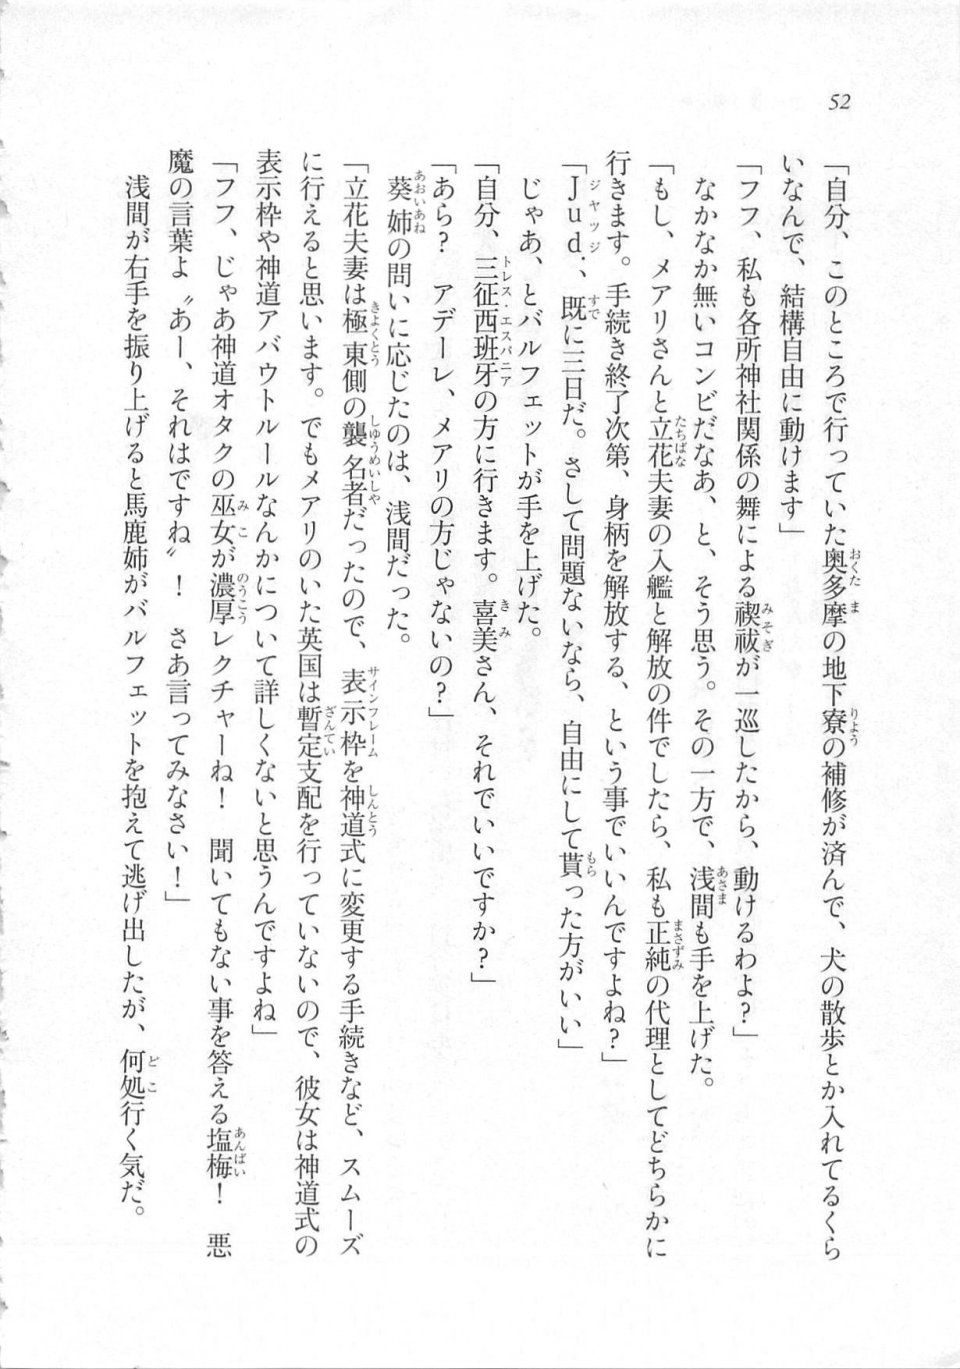 52
「自分、このところで行っていた奥多摩の地下寮の補修が済んで、犬の散歩とか入れてるくら
いなんで、結構自由に動けます」
「フフ、私も各所神社関係の舞による禊祓が一巡したから、動けるわよ？」
なかなか無いコンビだなあ、と、そう思う。その一方で、浅間も手を上げた。
「もし、メアリさんと立花夫妻の入艦と解放の件でしたら、私も正純の代理としてどちらかに
行きます。手続き終了次第、身柄を解放する、という事でいいんですよね？」
「Jud.、既に三日だ。さして問題ないなら、自由にして貰った方がいい」
じゃあ、とバルフェットが手を上げた。
「自分、三征西班牙の方に行きます。喜美さん、それでいいですか？」
「あら？　アデーレ、メアリの方じゃないの？」
葵姉の問いに応じたのは、浅間だった。
「立花夫妻は極東側の襲名者だったので、表示枠を神道式に変更する手続きなど、スムーズ
に行えると思います。でもメアリのいた英国は暫定支配を行っていないので、彼女は神道式の
表示枠や神道アバウトルールなんかについて詳しくないと思うんですよね」
「フフ、じゃあ神道オタクの巫女が濃厚レクチャーね！　聞いてもない事を答える塩梅！　悪
魔の言葉よ〝あー、それはですね〟！　さあ言ってみなさい！」
浅間が右手を振り上げると馬鹿姉がバルフェットを抱えて逃げ出したが、何処行く気だ。